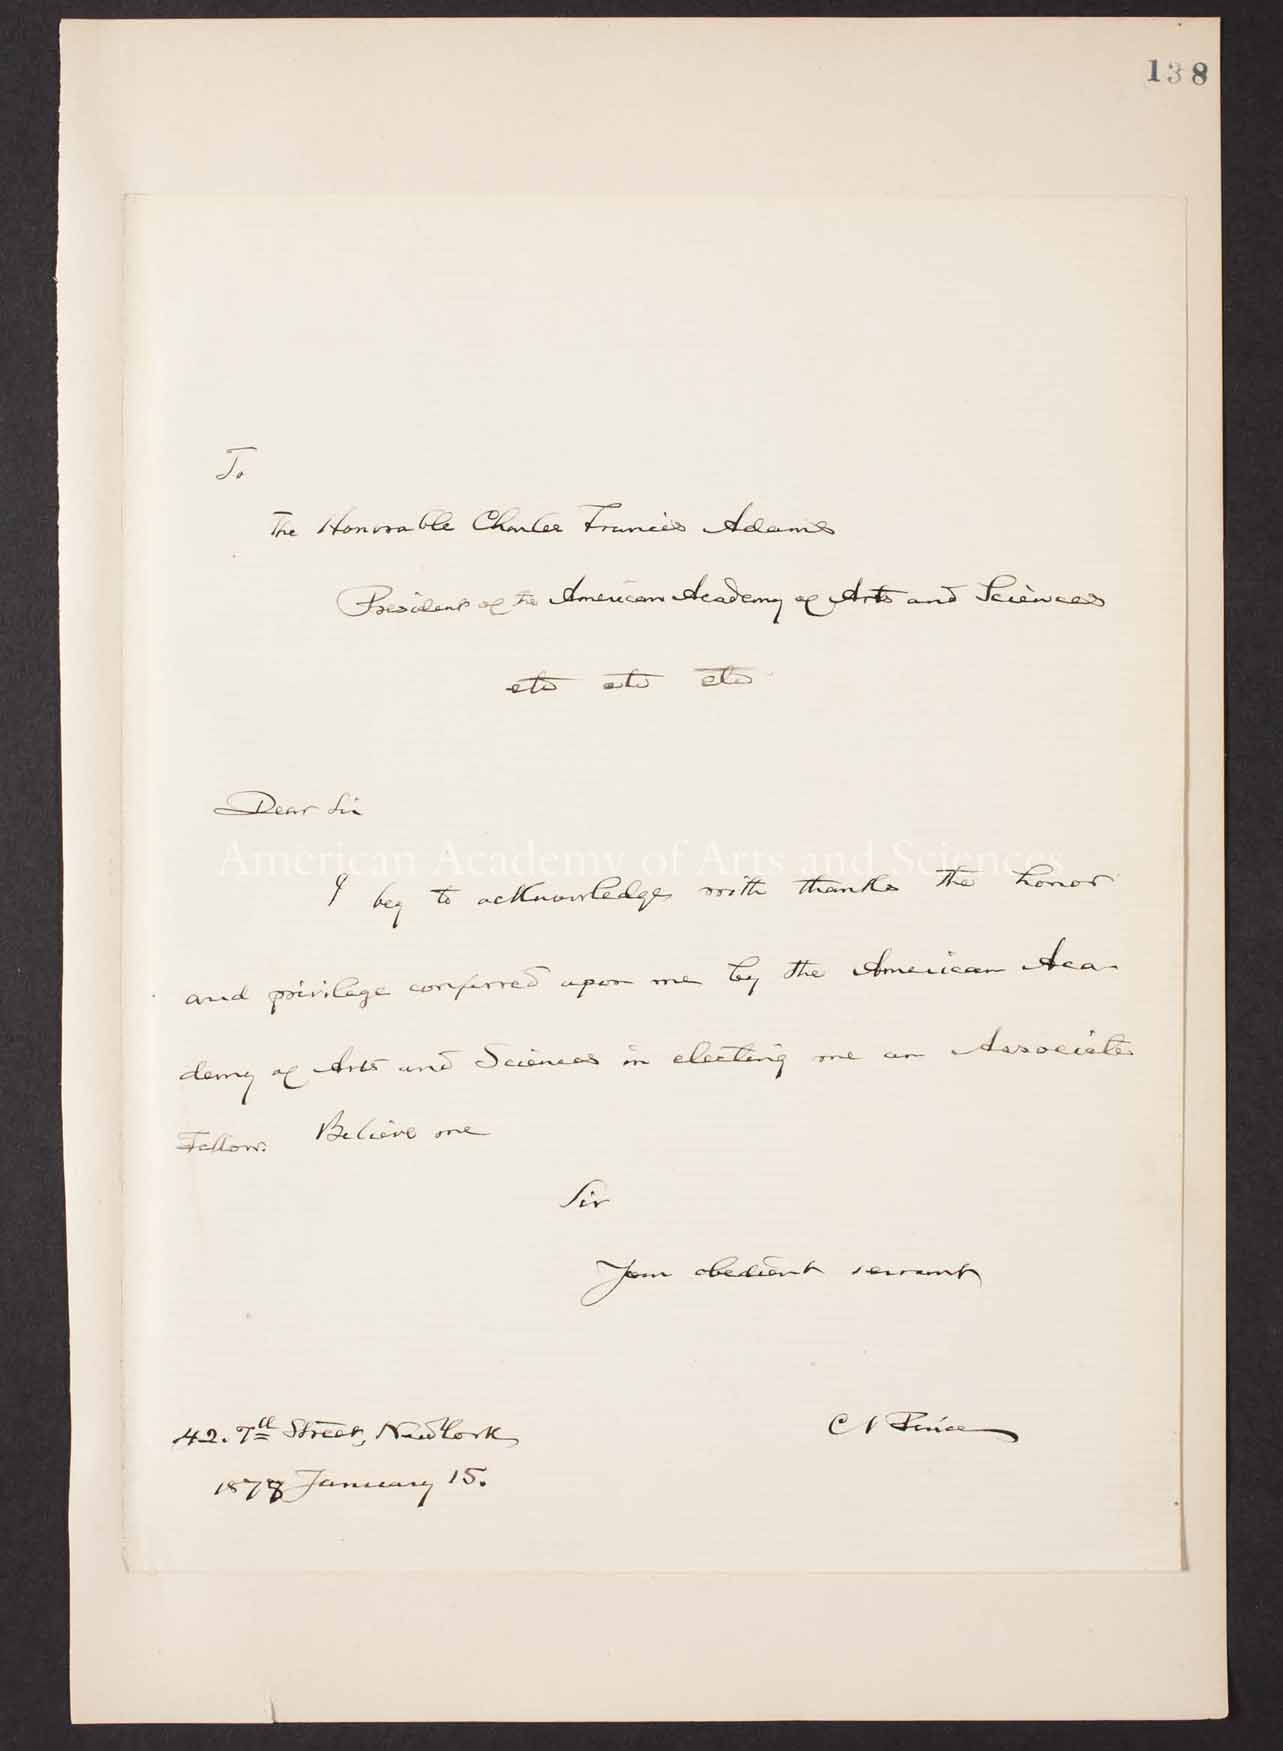 138
To
The Honorable Charles Francis Adams
President of the American Academy of Arts and Sciences
etc etc etc
Dear Sir
American Academy of Arts and Sciences
I beg to acknowledge with thanks the honor
and privilege conferred upon me by the American Aca-
demy of Arts and Sciences in electing me an Associate
Fellow. Believe me
Sir
Your obedient servant
C S Peirce
42. 7th Street, New York
1878 January 15.